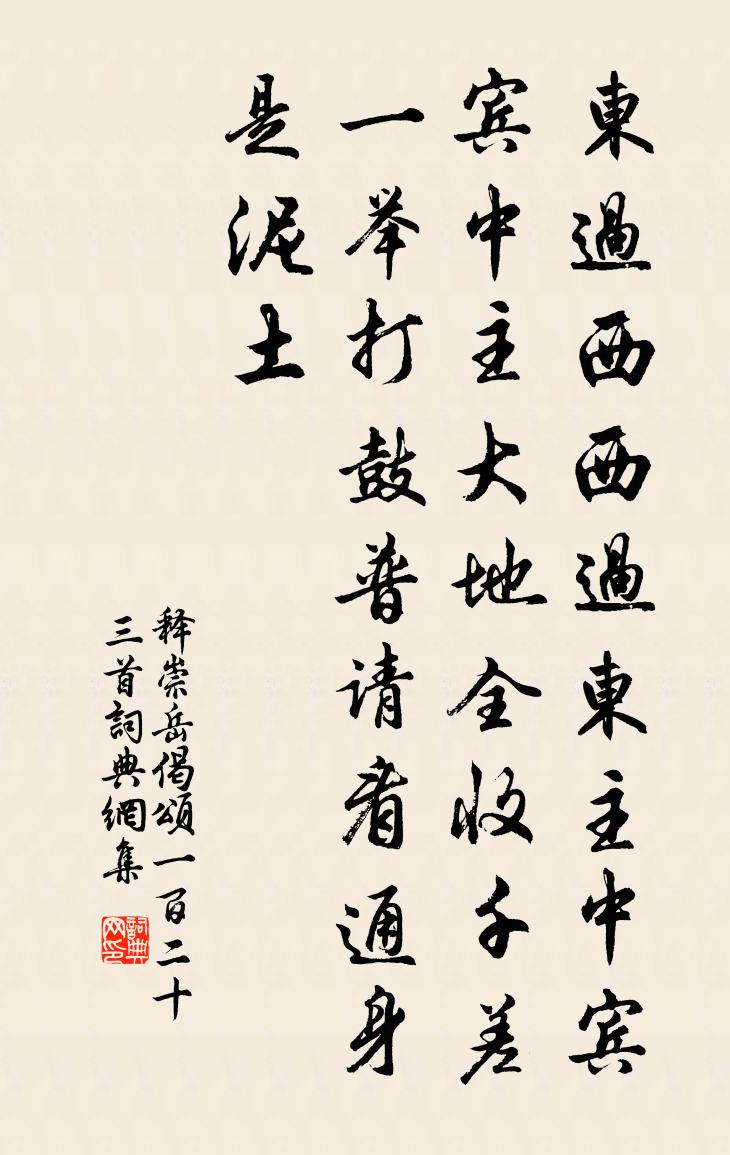 東過西西過東主中宾
宾中主大地全收千差
一举打鼓普请看通身
是泥土
释崇岳偈頌一百二十
三首詞典網集
詞典网印